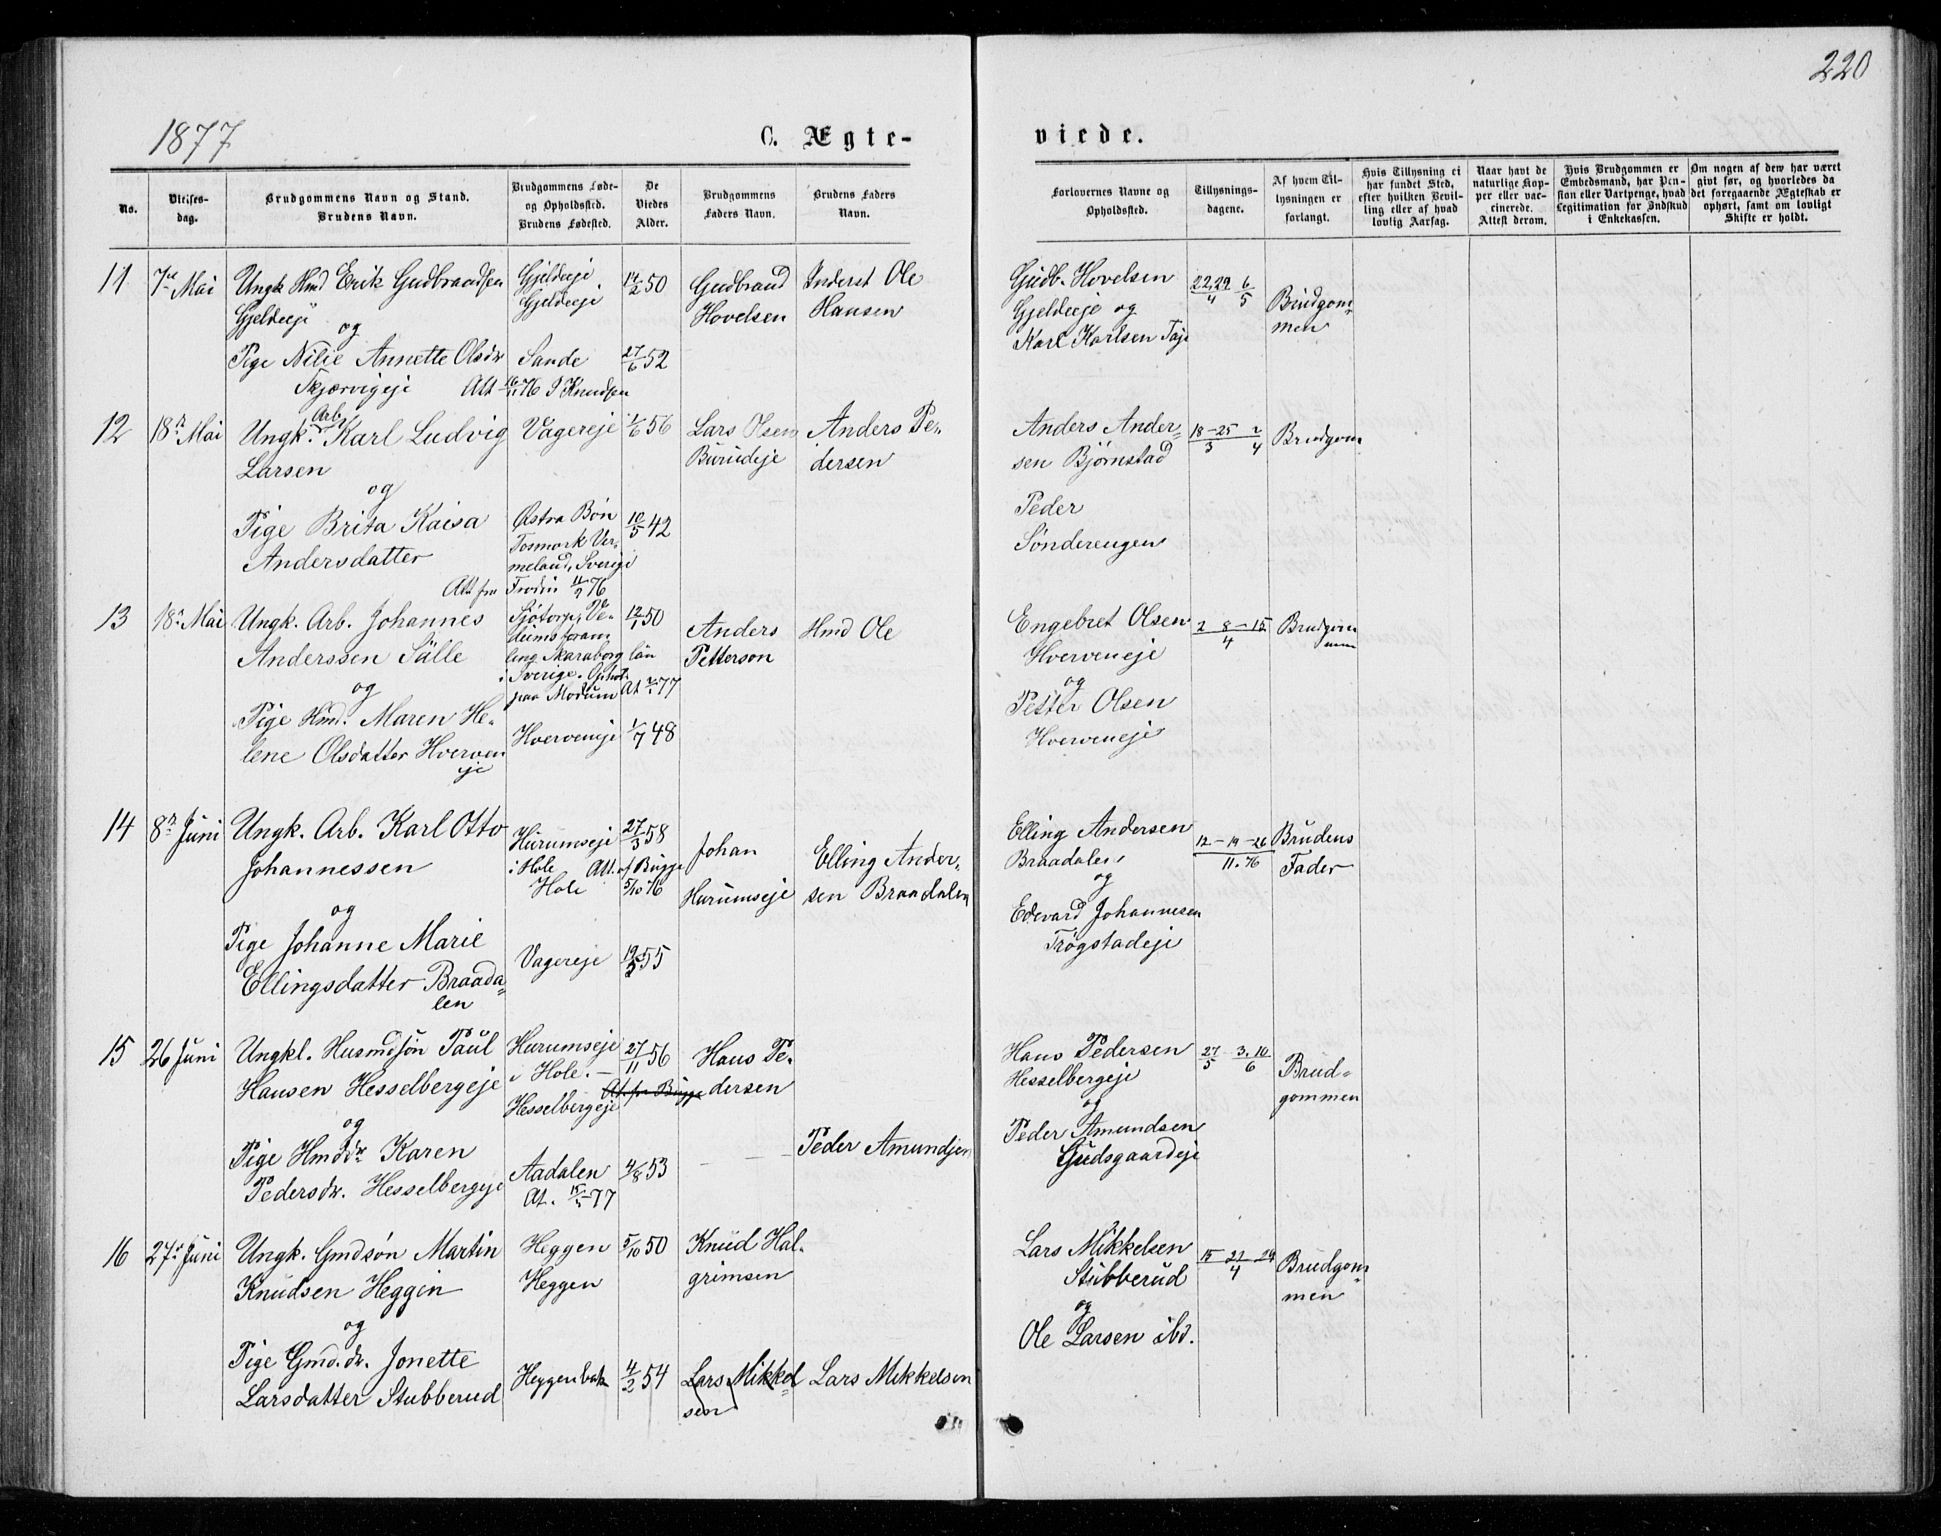 220
1877
C. Ægte-
viede.
No.
Vielses-
dag.
Brudgommens Navn og Stand.
Brudens Navn.
Brudgommens Føde-
og Opholdssted.
Brudens Fødested.
De
Viedes
Alder.
Brudgommens
Faders Navn.
Brudens Faders
Navn.
Forlovernes Navne og
Opholdssted.
Tillysnings-
dagene.
Af hvem Til-
lysningen er
forlangt.
Hvis Tillysning ei
har fundet Sted,
efter hvilken Bevil-
ling eller af hvad
lovlig Aarsag.
Naar havt de
naturlige Kop-
per eller vac-
cinerede.
Attest derom.
Hvis Brudgommen er
Embedsmand, har Pen-
sion eller Vartpenge, hvad
Legitimation for Indskud
i Enkekassen.
Om nogen af dem har været
gift før, og hvorledes da
det foregaaende Ægteskab er
ophørt, samt om lovligt
Skifte er holdt.
11
7de Mai
Ungk Hmd Erik Gudbrandsen
Gjeldeeje
og
Pige Nilie Annette Olsdr
Skjærvigeje
Gjeldeeje
Gjeldeeje
Sande
Att 16/11 76 P Knudsen
14/2 50
27/6 52
Gudbrand
Hovelsen
Inderst Ole
Hansen
Gudb. Hovelsen
Gjeldeeje og
Karl Karlsen
22. 29/4 6/5
Brudgom-
men
12
18n Mai
Ungk. Arb. Karl Ludvig
Larsen
og
Pige Brita Kaisa
Andersdatter
Vagereje
Østra Bøn
Tosmark Ver-
meland, Sverige
Att fra Frodin 11/2 76
1/6 56
10/5 42
Lars Olsen
Burudeje
Anders Pe-
dersen
Anders Ander-
sen Bjørnstad
Peder
Sønderengen
18-25/3 2/4
Brudgom
13
18n Mai
Ungk. Arb. Johannes
Anderssen Sälle
og
Pige Hmd. Maren He-
lene Olsdatter Hverven
eje
Sjötorp, Ve-
dums foram
ling Skaraborg län
i Sverige. Ophol
paa Modum At 77
Hverveneje
12/1 50
1/7 48
Anders
Petterson
Hmd Ole
Engebret Olsen
Hverveneje
og
Petter Olsen
Hverveneje
2 8-15/4
Brudgom
men
14
8n Juni
Ungk. Arb. Karl Otto
Johannessen
og
Pige Johanne Marie
Ellingsdatter Braada-
len
Hurumseje
i Hole Att. af Bugge
Hole 5/10 76
Vagereje
27/3 58
19/2 55
Johan
Hurumseje
Elling Ander-
sen Braadalen
Elling Andersen
Braadalen
og
Edevard Johannesen
Trøgstadeje
12-19-26/11.76
Brudens
Fader
15
26 Juni
Ungkl. Husmdsøn Paul
Hansen Hesselbergeje
og
Pige Hmddr Karen
Pedersdr. Hesselbergeje
Hurumseje
i Hole.-
At. fra Bugge
Hesselbergeje
Aadalen
At. 77
27/11 56
4/8 53
Hans Pe-
dersen
Peder Amundsen
Hans Pedersen
Hesselbergeje
og
Peder Amundsen
Gudsgaardeje
27/5 3. 10/6
Brud-
gommen
16
27d Juni
Ungk. Gmdsøn Martin
Knudsen Heggen
og
Pige Gmd.dr. Jonette
Larsdatter Stubberud
Heggen
Heggen
Heggenbak
5/10 50
4/2 54
Knud Hal-
grimsen
Lars Mikkel
sen
Lars Mikkelsen
Lars Mikkelsen
Stubberud
og
Ole Larsen ibd.
Brudgom-
men